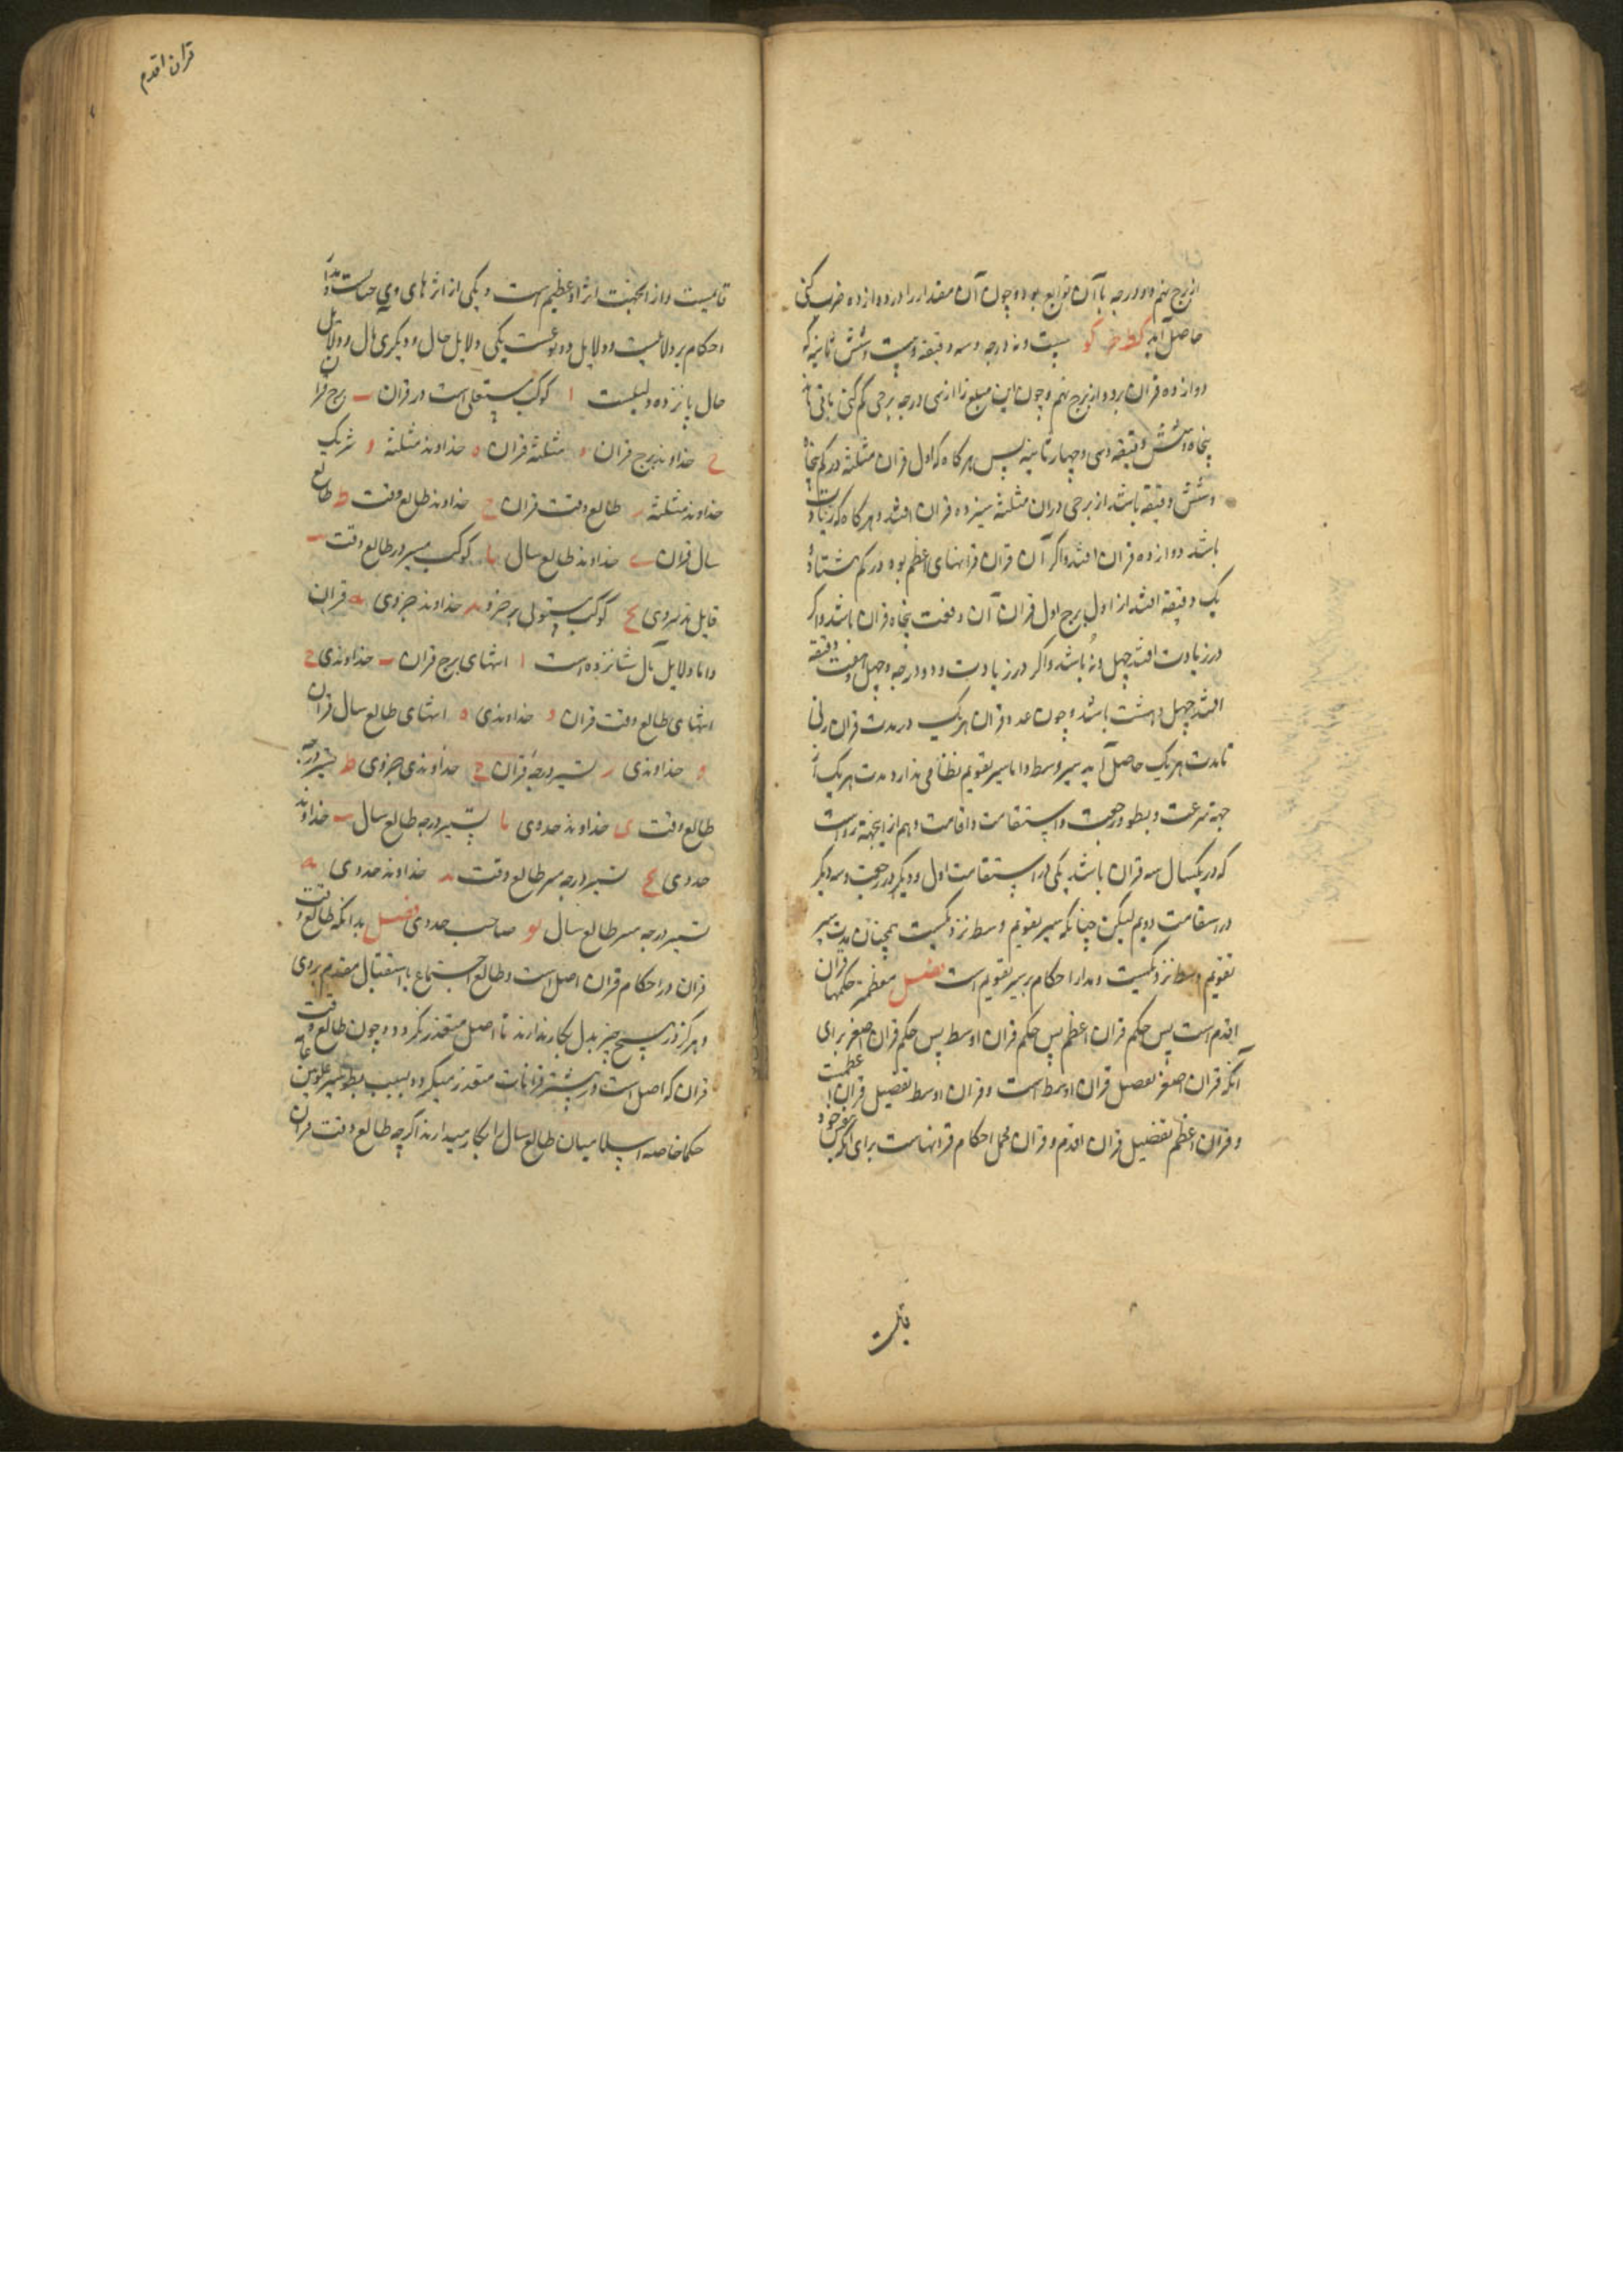 از برج نهم و دو درجه با آن توابع بود و چون آن مقدار را در دوازده ضرب کنی
حاصل آید کط حـ کو بیست و نه درجه و سه دقیقه و بیست و شش ثانیه که
دوازده قران برود از برج نهم و چون این مبلغ را از سی درجه برجی کم کنی باقی ماند
پنجاه و شش دقیقه و سی و چهار ثانیه پس هرگاه که اول قران مثلثه در کم پنجاه
و شش دقیقه باشد از برجی در آن مثلثه سیزده قران افتد و هرگاه که زیادت
باشد دوازده قران افتد و اگر آن قران قرانهای اعظم بود در کم هشتاد
یک دقیقه افتد از اول برج اول قران آن وقت پنجاه قران باشد و اگر
در زیادت افتد چهل و نه باشد و اگر در زیادت دو درجه و چهل و هفت دقیقه
افتد چهل و هشت باشد و چون عدد قران هریک در مدت قران زنی
تا مدت هریک حاصل آید بسیر وسط و اما سیر تقویم نظامی ندارد مدت هریک از
جهة سرعت و بطو و رجعت و استقامت و اقامت و هم از این جهة رواست
که در یکسال سه قران باشد یکی در استقامت اول و دیگر در رجعت و سه دیگر
در استقامت دویم لیکن چنانکه سیر تقویم وسط نزدیکست همچنان مدت سیر
تقویم وسط نزدیکست و مدار احکام بر سیر تقویم است فصل معظمترین حکمها قران
اقدم است پس حکم قران اعظم پس حکم قران اوسط پس حکم قران اصغر برای
آنکه قران اصغر تفصیل قران اوسط است و قران اوسط تفصیل قران اعظمست
و قران اعظم تفصیل قران اقدم و قران مجمل احکام قرانهاست برای آنکه
قابلیست
قران اقدم
قابلیست و از این جهت اثر او عظیم است و یکی از اثرهای وی
احکام بر دلالتست و دلایل دو نوعست یکی دلایل حال و دیگری مآل و دلایل
حال پانزده دلیلست ا کوکب مستعلی است در قران ب برج قران
ج خداوند برج قران د مثلثهٔ قران ه خداوند مثلثه و شریک
خداوند مثلثه ز طالع وقت قران ح خداوند طالع وقت ط طالع
سال قران ی خداوند طالع سال یا کوکب مسیر در طالع وقت یب
قابل تدبیر وی یج کوکب مستولی بر جزو ید خداوند جزو وی یه قران
و اما دلایل مآل شانزده است ا انتهای برج قران ب خداوند وی ج
انتهای طالع وقت قران د خداوند وی ه انتهای طالع سال قران
و خداوند وی ز تسییر درجهٔ قران ح خداوند وی جزو وی ط تسییر درجه
طالع وقت ی خداوند حد وی یا تسییر درجه طالع سال یب خداوند
حد وی یج تسییر درجه مسیر طالع وقت ید خداوند حد وی یه
تسییر درجه مسیر طالع سال یو صاحب حد وی فصل بدانکه طالع وقت
قران در احکام قران اصل است و طالع اجتماع یا استقبال مقدم بر وی
و هرگز در هیچ چیز بدل بکار ندارند تا اصل متعذر نگردد و چون طالع وقت
قران که اصل است در بیشتر قرانات متعذر میگردد بسبب بطو سیر علویین
حکما خاصه اسلامیان طالع سال را بکار میدارند اگرچه طالع وقت قران